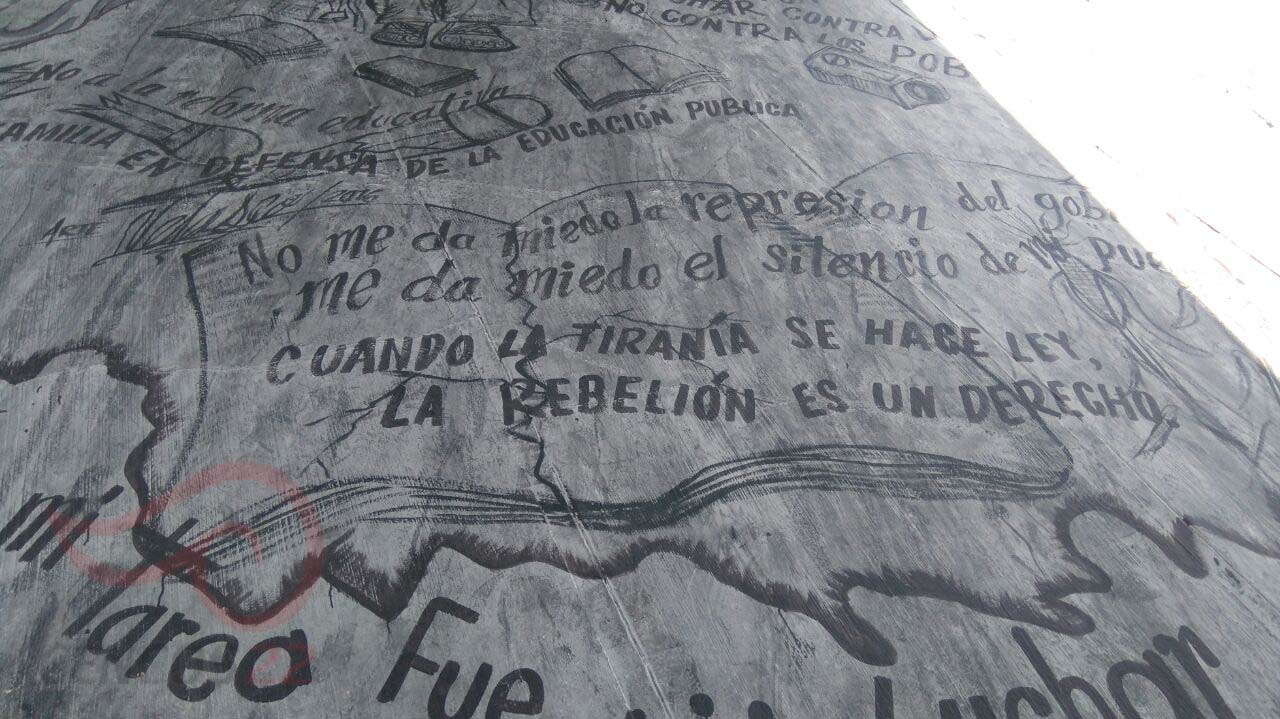 CHAR CONTRA
NO CONTRA LOS POB
No a la reforma educativa
AMILIA EN DEFENSA DE LA EDUCACIÓN PUBLICA
No me da miedo la represion del gob
, me da miedo el silencio de mi PUE
CUANDO LA TIRANÍA SE HACE LEY,
LA REBELIÓN ES UN DERECHO.
mi Tarea Fue
Luchar